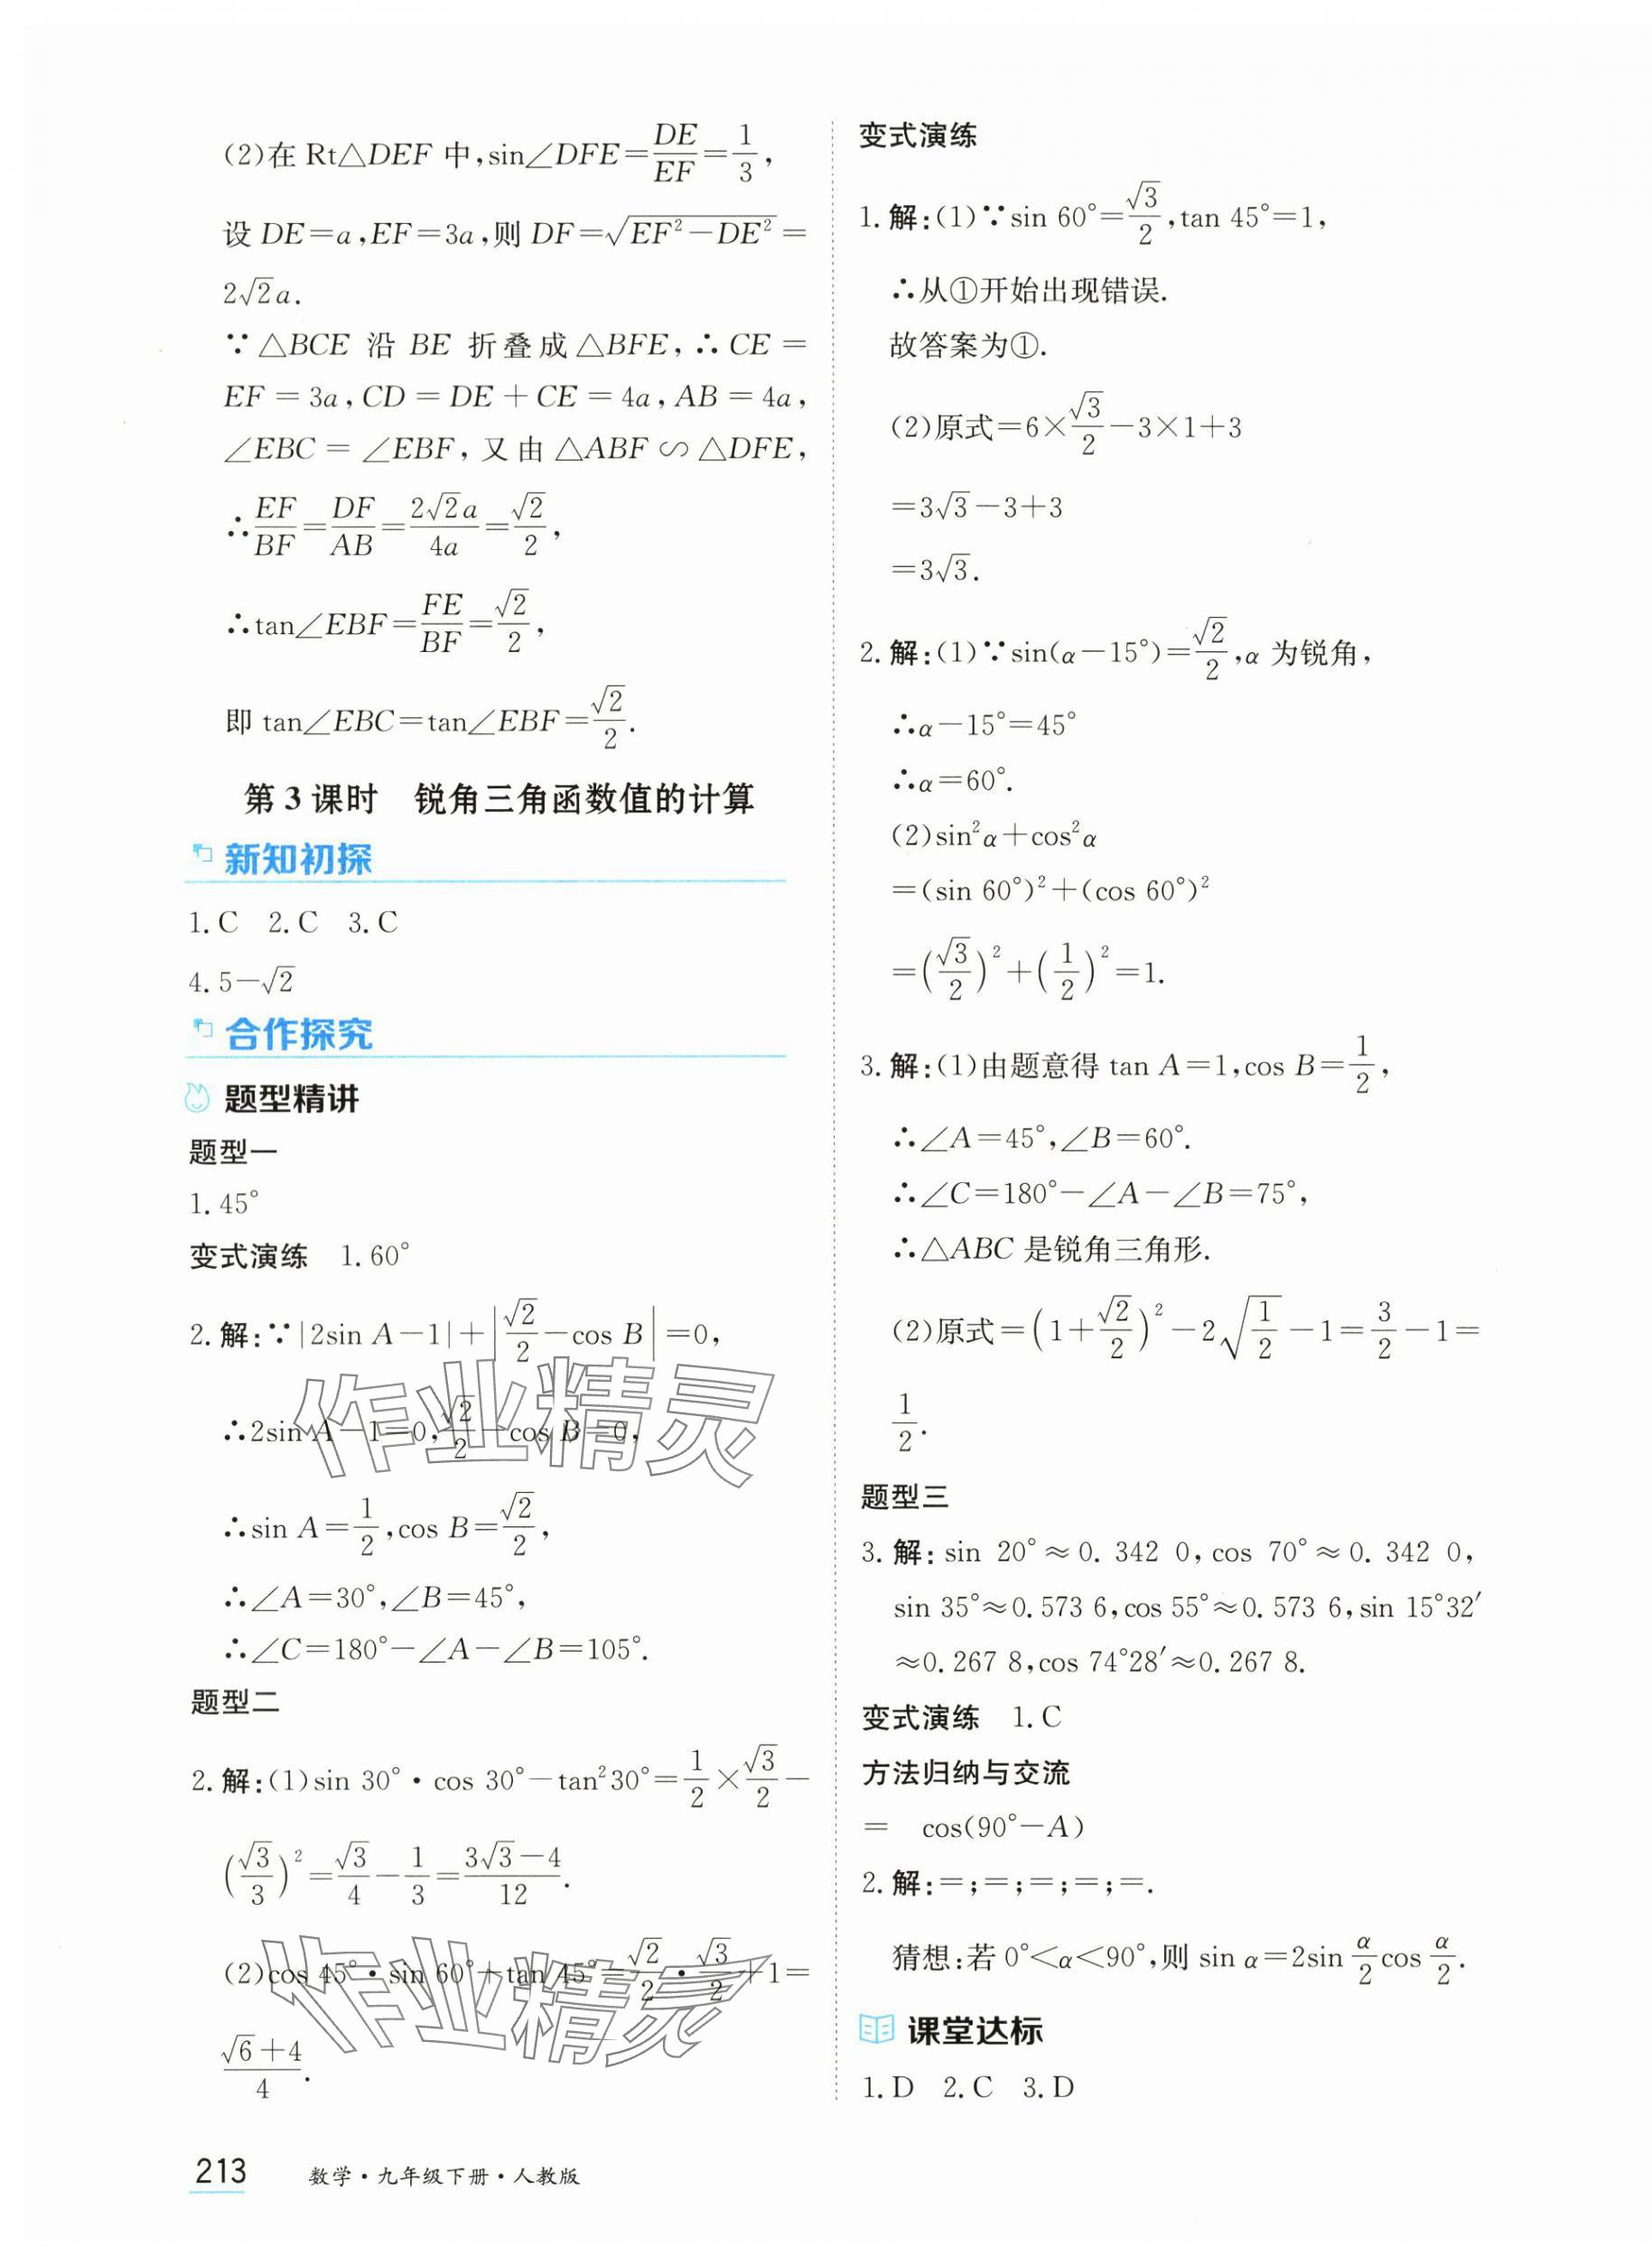 (2)在 Rt△DEF 中,sin∠DFE=DE/EF=1/3,
设 DE=a,EF=3a,则 DF=√(EF²-DE²)=
2√2a.
∵△BCE 沿 BE 折叠成△BFE,∴CE=
EF=3a,CD=DE+CE=4a,AB=4a,
∠EBC=∠EBF,又由△ABF∽△DFE,
∴EF/BF=DF/AB=2√2a/4a=√2/2,
∴tan∠EBF=FE/BF=√2/2,
即 tan∠EBC=tan∠EBF=√2/2.
第 3 课时 锐角三角函数值的计算
新知初探
1.C 2.C 3.C
4.5-√2
合作探究
题型精讲
题型一
1.45°
变式演练 1.60°
2.解:∵|2sin A-1|+|√2/2-cos B|=0,
∴2sin A-1=0,√2/2-cos B=0,
∴sin A=1/2,cos B=√2/2,
∴∠A=30°,∠B=45°,
∴∠C=180°-∠A-∠B=105°.
题型二
2.解:(1)sin 30°·cos 30°-tan²30°=1/2×√3/2-
(√3/3)²=√3/4-1/3=(3√3-4)/12.
(2)cos 45°·sin 60°+tan 45°=√2/2·√3/2+1=
(√6+4)/4.
213 数学·九年级下册·人教版
变式演练
1.解:(1)∵sin 60°=√3/2,tan 45°=1,
∴从①开始出现错误.
故答案为①.
(2)原式=6×√3/2-3×1+3
=3√3-3+3
=3√3.
2.解:(1)∵sin(α-15°)=√2/2,α 为锐角,
∴α-15°=45°
∴α=60°.
(2)sin²α+cos²α
=(sin 60°)²+(cos 60°)²
=(√3/2)²+(1/2)²=1.
3.解:(1)由题意得 tan A=1,cos B=1/2,
∴∠A=45°,∠B=60°.
∴∠C=180°-∠A-∠B=75°,
∴△ABC 是锐角三角形.
(2)原式=(1+√2/2)²-2√(1/2)-1=3/2-1=
1/2.
题型三
3.解:sin 20°≈0.342 0,cos 70°≈0.342 0,
sin 35°≈0.573 6,cos 55°≈0.573 6,sin 15°32′
≈0.267 8,cos 74°28′≈0.267 8.
变式演练 1.C
方法归纳与交流
= cos(90°-A)
2.解:=;=;=;=;=.
猜想:若 0°<α<90°,则 sin α=2sin α/2 cos α/2.
课堂达标
1.D 2.C 3.D
作业精灵
作业精灵